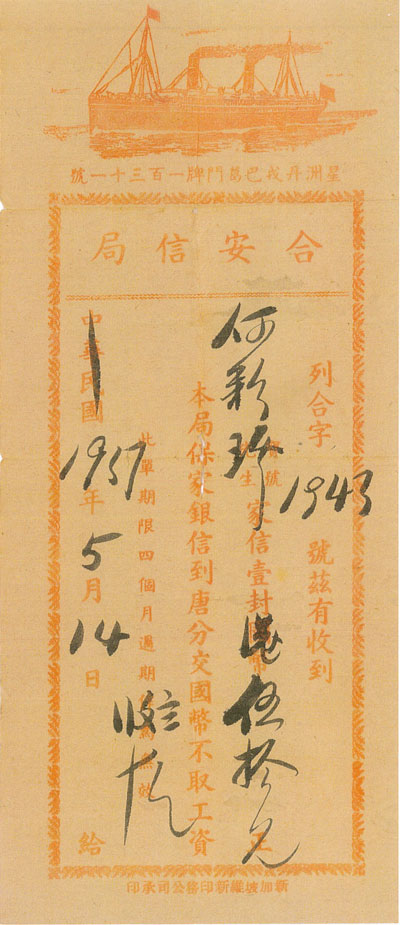 星洲丹戎巴葛門牌一百三十一號
合安信局
列合字 1943 號茲有收到
何彩 寶號 先生 家信壹封國幣 港伍拾元 正
本局保家銀信到唐分交國幣不取工資
此單期限四個月過期 無效
收立
中華民國 1957 年 5 月 14 日 給
新加坡維新印務公司承印